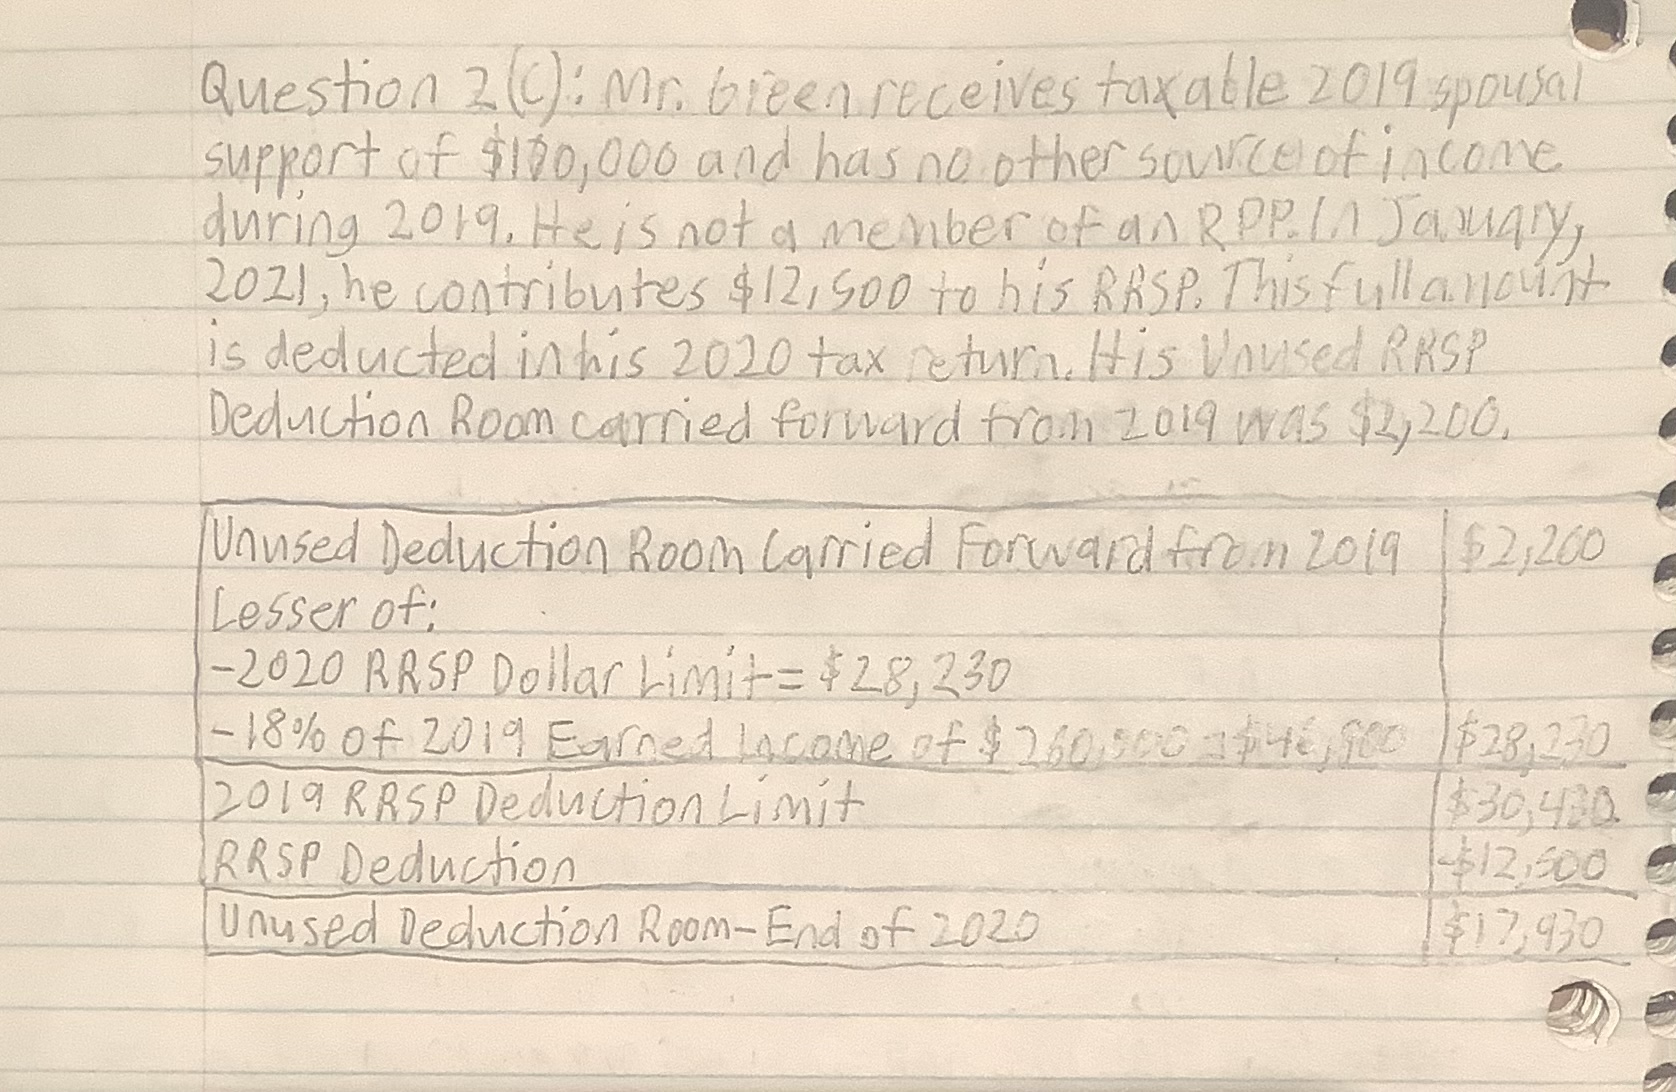 Question 2(C): Mr. Green receives taxable 2019 spousal
support of $100,000 and has no other source of income
during 2019. He is not a member of an RPP. In January,
2021, he contributes $12,500 to his RRSP. This full amount
is deducted in his 2020 tax return. His Unused RRSP
Deduction Room carried forward from 2019 was $2,200.
Unused Deduction Room Carried Forward from 2019 $2,200
Lesser of:
-2020 RRSP Dollar Limit = $28,230
-18% of 2019 Earned Income of $260,000 = $46,800 $28,230
2019 RRSP Deduction Limit $30,430
RRSP Deduction -$12,500
Unused Deduction Room-End of 2020 $17,930